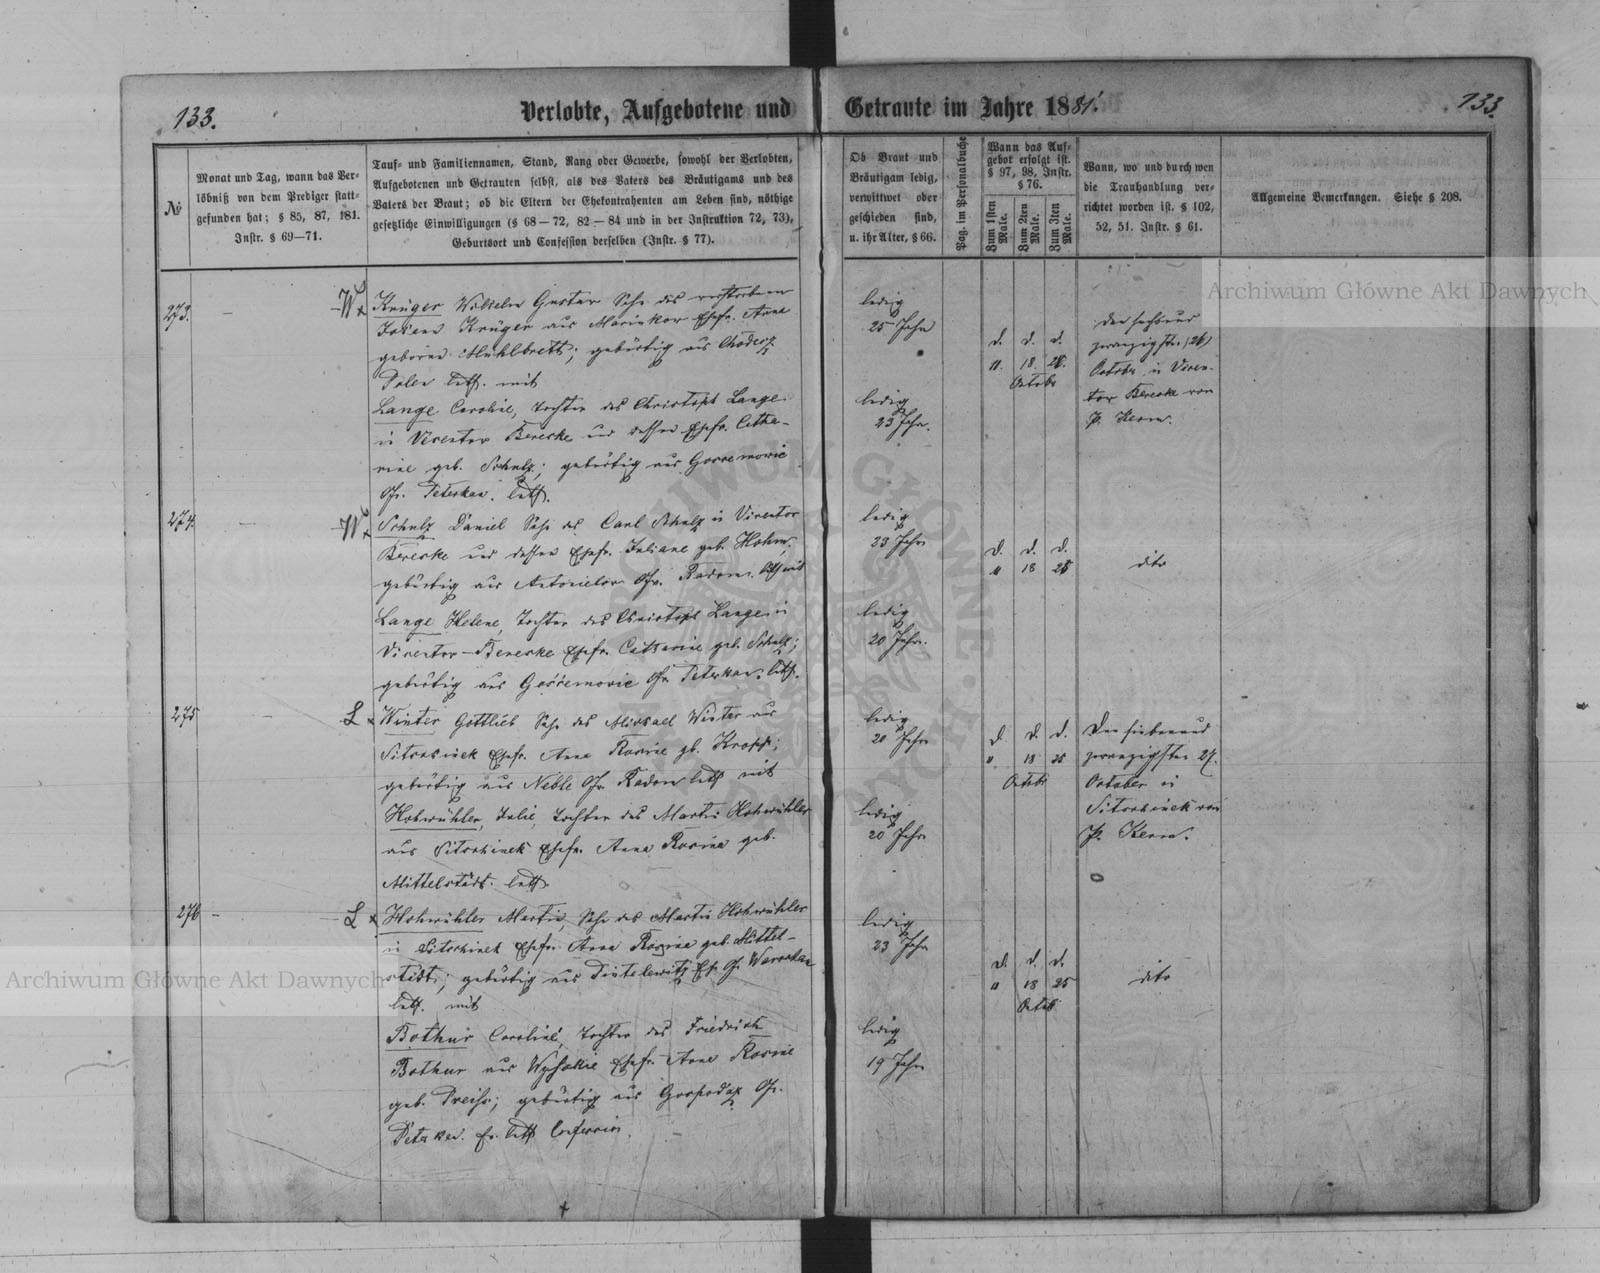 133.
Verlobte, Aufgebotene und Getraute im Jahre 1881.
133.
№
Monat und Tag, wann das Ver-
löbniß von dem Prediger statt-
gefunden hat; § 85, 87, 181.
Instr. § 69—71.
Tauf- und Familiennamen, Stand, Rang oder Gewerbe, sowohl der Verlobten,
Aufgebotenen und Getrauten selbst, als des Vaters des Bräutigams und des
Vaters der Braut; ob die Eltern der Ehekontrahenten am Leben sind, nöthige
gesetzliche Einwilligungen (§ 68—72, 82—84 und in der Instruktion 72, 73),
Geburtsort und Confession derselben (Instr. § 77).
Ob Braut und
Bräutigam ledig,
verwittwet oder
geschieden sind,
u. ihr Alter, § 66.
Pag. im Personalbuche
Wann das Auf-
gebot erfolgt ist.
§ 97, 98, Instr.
§ 76.
Zum 1sten Male.
Zum 2ten Male.
Zum 3ten Male.
Wann, wo und durch wen
die Trauhandlung ver-
richtet worden ist. § 102,
52, 51. Instr. § 61.
Allgemeine Bemerkungen. Siehe § 208.
273.
W
Krüger Wilhelm Gustav Sohn des verstorbenen
Krüger aus Marinkow Ehefr. Anna
geborene Mühlbrett; gebürtig aus Chodecz
Polen luth. mit
Lange Caroline, Tochter des Christoph Lange
in Vicentow Berecke und dessen Ehefr. Catha-
rine geb. Schulz; gebürtig aus
Gr. Peterkau. luth.
ledig
25 Jahre
ledig
23 Jahre.
d. d. d.
11. 18. 25.
October
Den sechsund
zwanzigsten (26)
October in Vicen-
tow Berecke von
P. Kern.
274.
W
Schulz Daniel Sohn des Carl Schulz in Vicentow
Berecke und dessen Ehefr. Juliane geb. Hohm,
gebürtig aus Antonielow Gr. Radom. luth mit
Lange Helene, Tochter des Christoph Lange in
Vicentow-Berecke Ehefr. Catharine geb. Schulz;
gebürtig aus Gr. Peterkau. luth.
ledig
23 Jahre
ledig
20 Jahre.
d. d. d.
11 18 25
dito
275
L
Winter Gottlieb Sohn des Michael Winter aus
Sitarchinek Ehefr. Anna Rosine gb. Kropp;
gebürtig aus Gr. Radom luth mit
Hohmühler, Julie, Tochter des Martin Hohmühler
aus Sitarchinek Ehefr. Anna Rosine geb.
Mittelstädt. luth.
ledig
20 Jahre
ledig
20 Jahre
d. d. d.
11 18 25
Octob
Den siebenund
zwanzigsten 27.
October in
Sitarchinek von
P. Kern.
276
L
Hohmühler Martin, Sohn des Martin Hohmühler
in Sitarchinek Ehefr. Anna Rosine geb. Mittel-
städt; gebürtig aus Gr. Warschau
luth. mit
Bothur Caroline, Tochter des Friedrich
Bothur aus Wysokie Ehefr. Anna Rosine
geb. Dreiss; gebürtig aus Gr.
Peterkau. luth
ledig
23 Jahre
ledig
19 Jahre
d. d. d.
11 18 25
Octob
dito
Archiwum Główne Akt Dawnych
Archiwum Główne Akt Dawnych